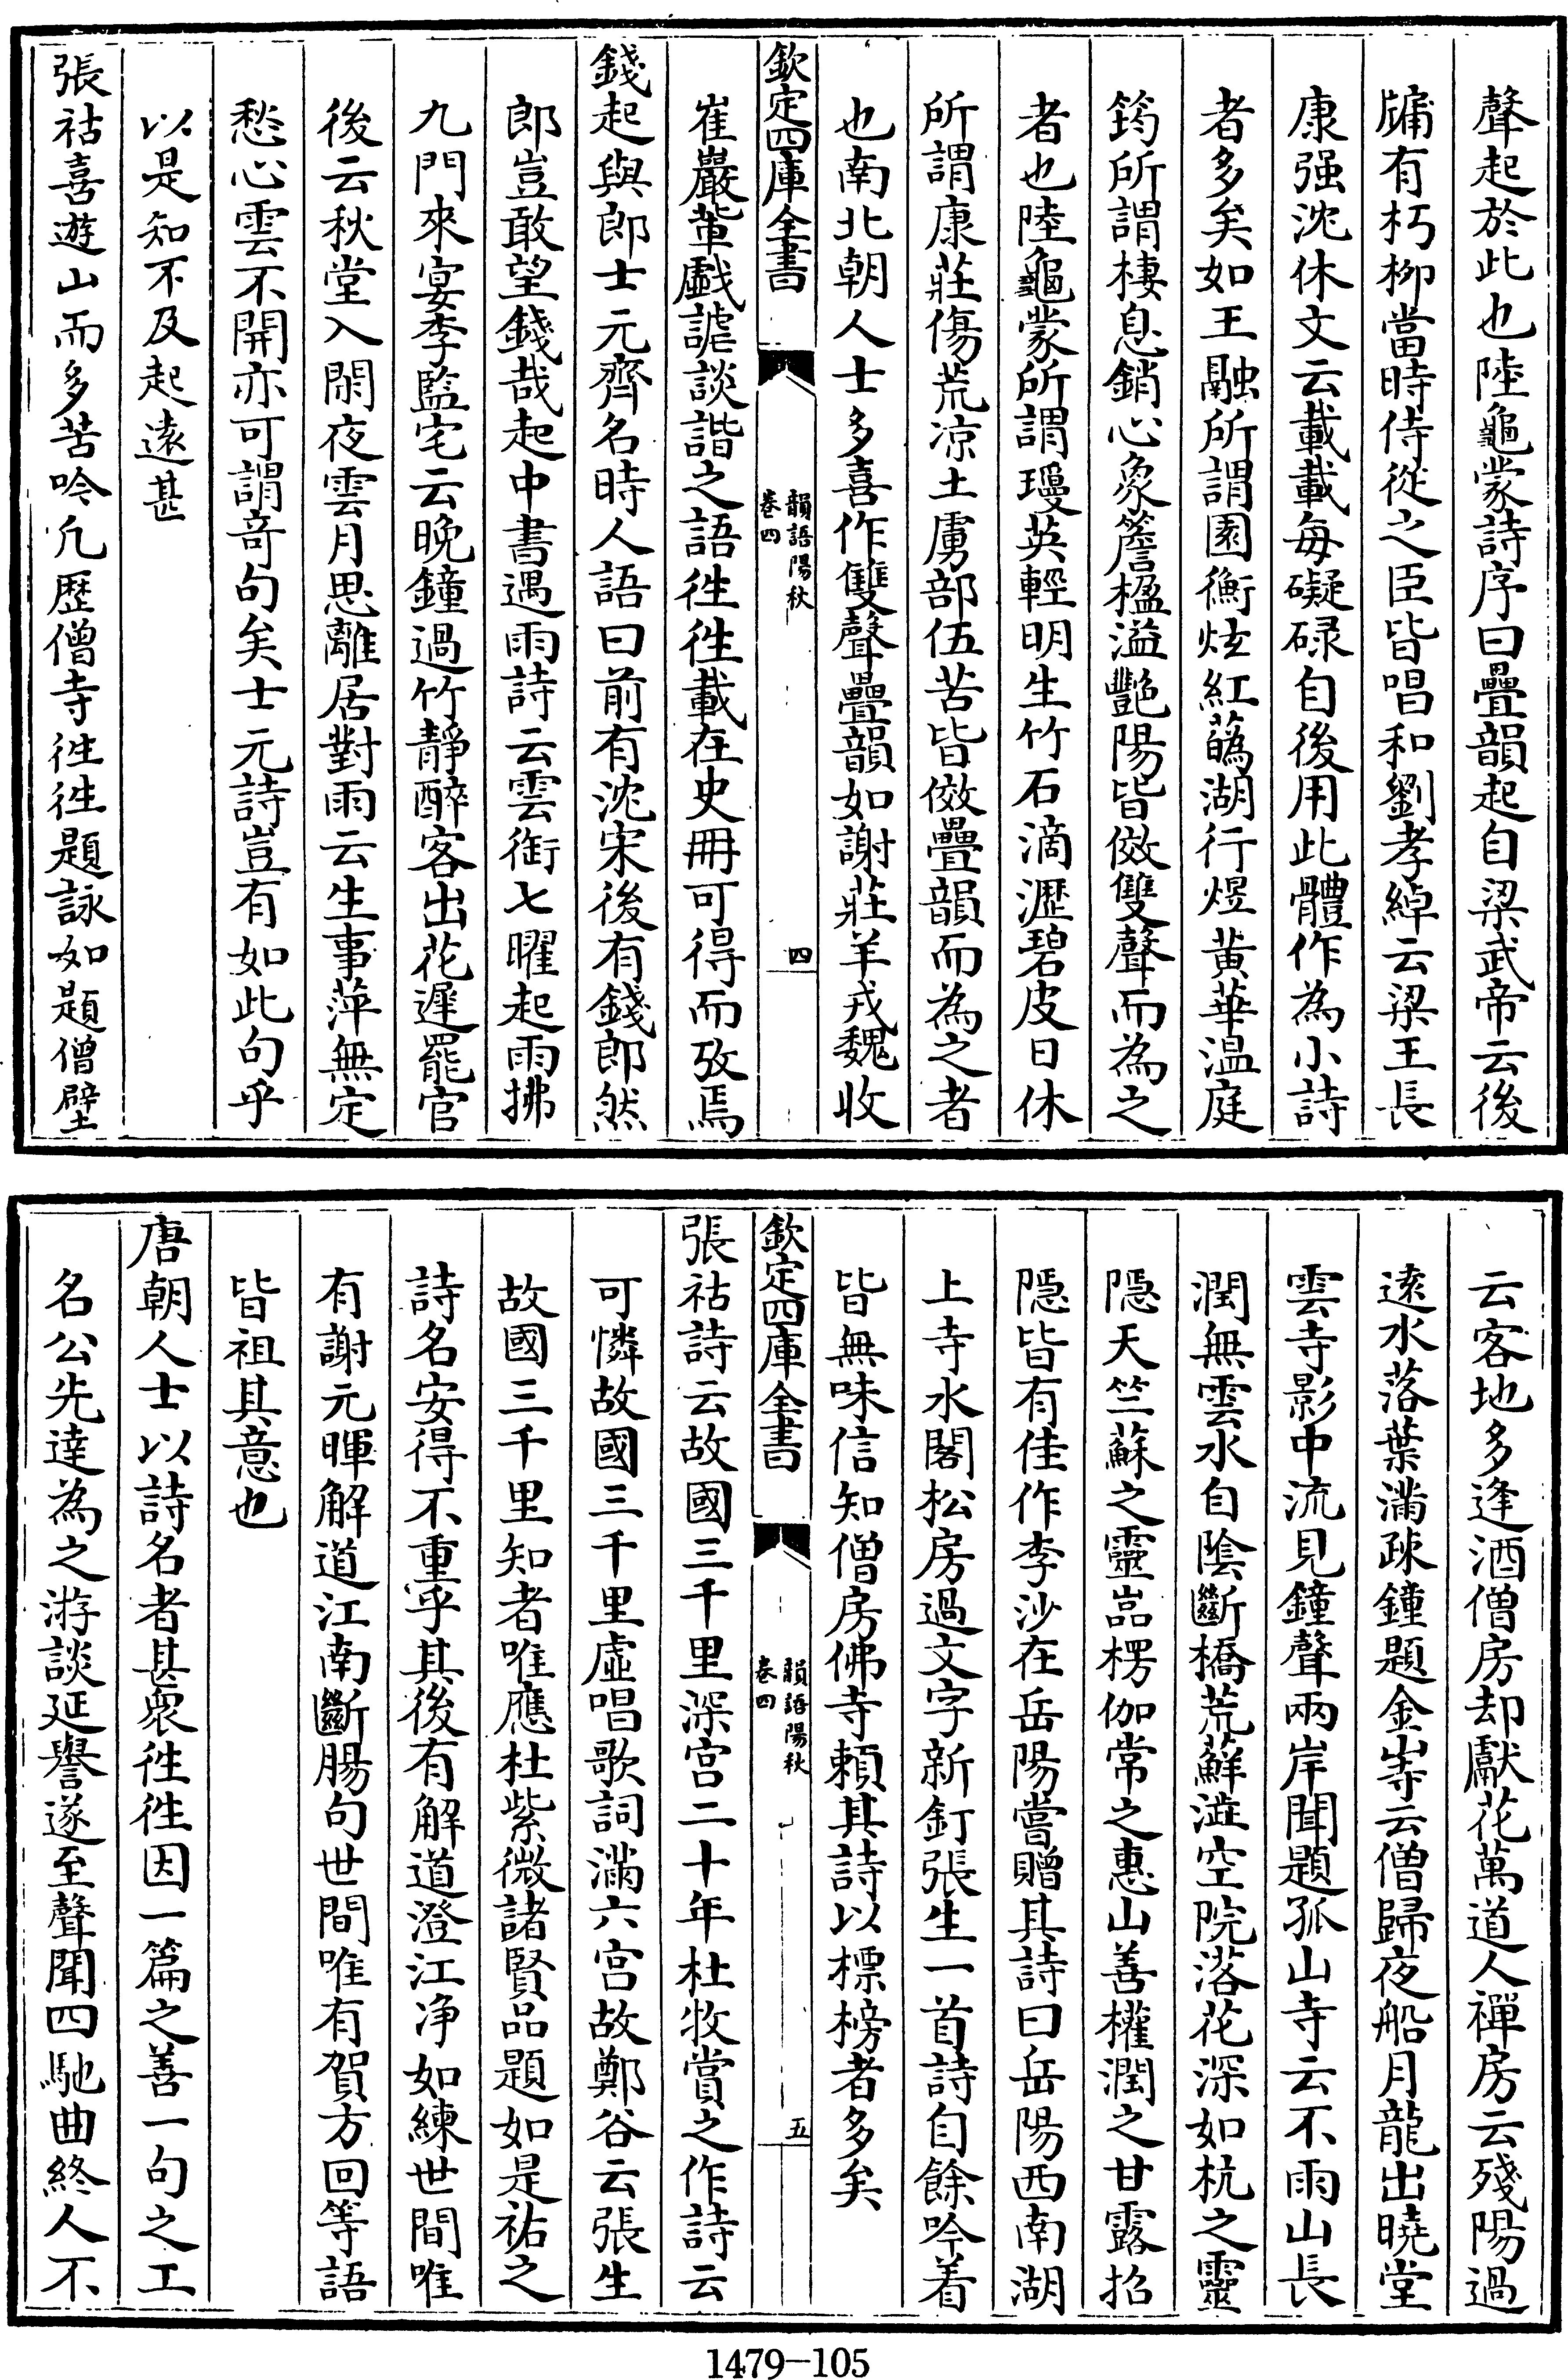 聲起於此也陸龜蒙詩序曰疊韻起自梁武帝云後
牖有朽柳當時侍從之臣皆唱和劉孝綽云梁王長
康强沈休文云載載每礙碌自後用此體作為小詩
者多矣如王融所謂園蘅炫紅蘤湖行煜黄華温庭
筠所謂棲息銷心象簷楹溢艷陽皆傚雙聲而為之
者也陸龜蒙所謂瓊英輕明生竹石滴瀝碧皮日休
所謂康莊傷荒凉土虜部伍苦皆傚疊韻而為之者
也南北朝人士多喜作雙聲疊韻如謝莊羊戎魏收
欽定四庫全書
韻語陽秋
卷四
四
崔巖軰戯謔談諧之語徃徃載在史冊可得而攷焉
錢起與郎士元齊名時人語曰前有沈宋後有錢郎然
郎豈敢望錢哉起中書遇雨詩云雲銜七曜起雨拂
九門來宴李監宅云晚鐘過竹靜醉客出花遲罷官
後云秋堂入閑夜雲月思離居對雨云生事萍無定
愁心雲不開亦可謂竒句矣士元詩豈有如此句乎
以是知不及起遠甚
張祜喜遊山而多苦吟凢歴僧寺徃徃題詠如題僧壁
云客地多逢酒僧房却獻花萬道人禪房云殘陽過
遠水落葉滿疎鐘題金山寺云僧歸夜船月龍出曉堂
雲寺影中流見鐘聲兩岸聞題孤山寺云不雨山長
潤無雲水自隂斷橋荒蘚澁空院落花深如杭之靈
隱天竺蘇之靈嵓楞伽常之惠山善權潤之甘露招
隱皆有佳作李沙在岳陽嘗贈其詩曰岳陽西南湖
上寺水閣松房過文字新釘張生一首詩自餘吟着
皆無味信知僧房佛寺頼其詩以標榜者多矣
欽定四庫全書
韻語陽秋
卷四
五
張祜詩云故國三千里深宫二十年杜牧賞之作詩云
可憐故國三千里虛唱歌詞滿六宫故鄭谷云張生
故國三千里知者唯應杜紫微諸賢品題如是祜之
詩名安得不重乎其後有解道澄江净如練世間唯
有謝元暉解道江南斷腸句世間唯有賀方回等語
皆祖其意也
唐朝人士以詩名者甚衆徃徃因一篇之善一句之工
名公先達為之游談延譽遂至聲聞四馳曲終人不
1479—105